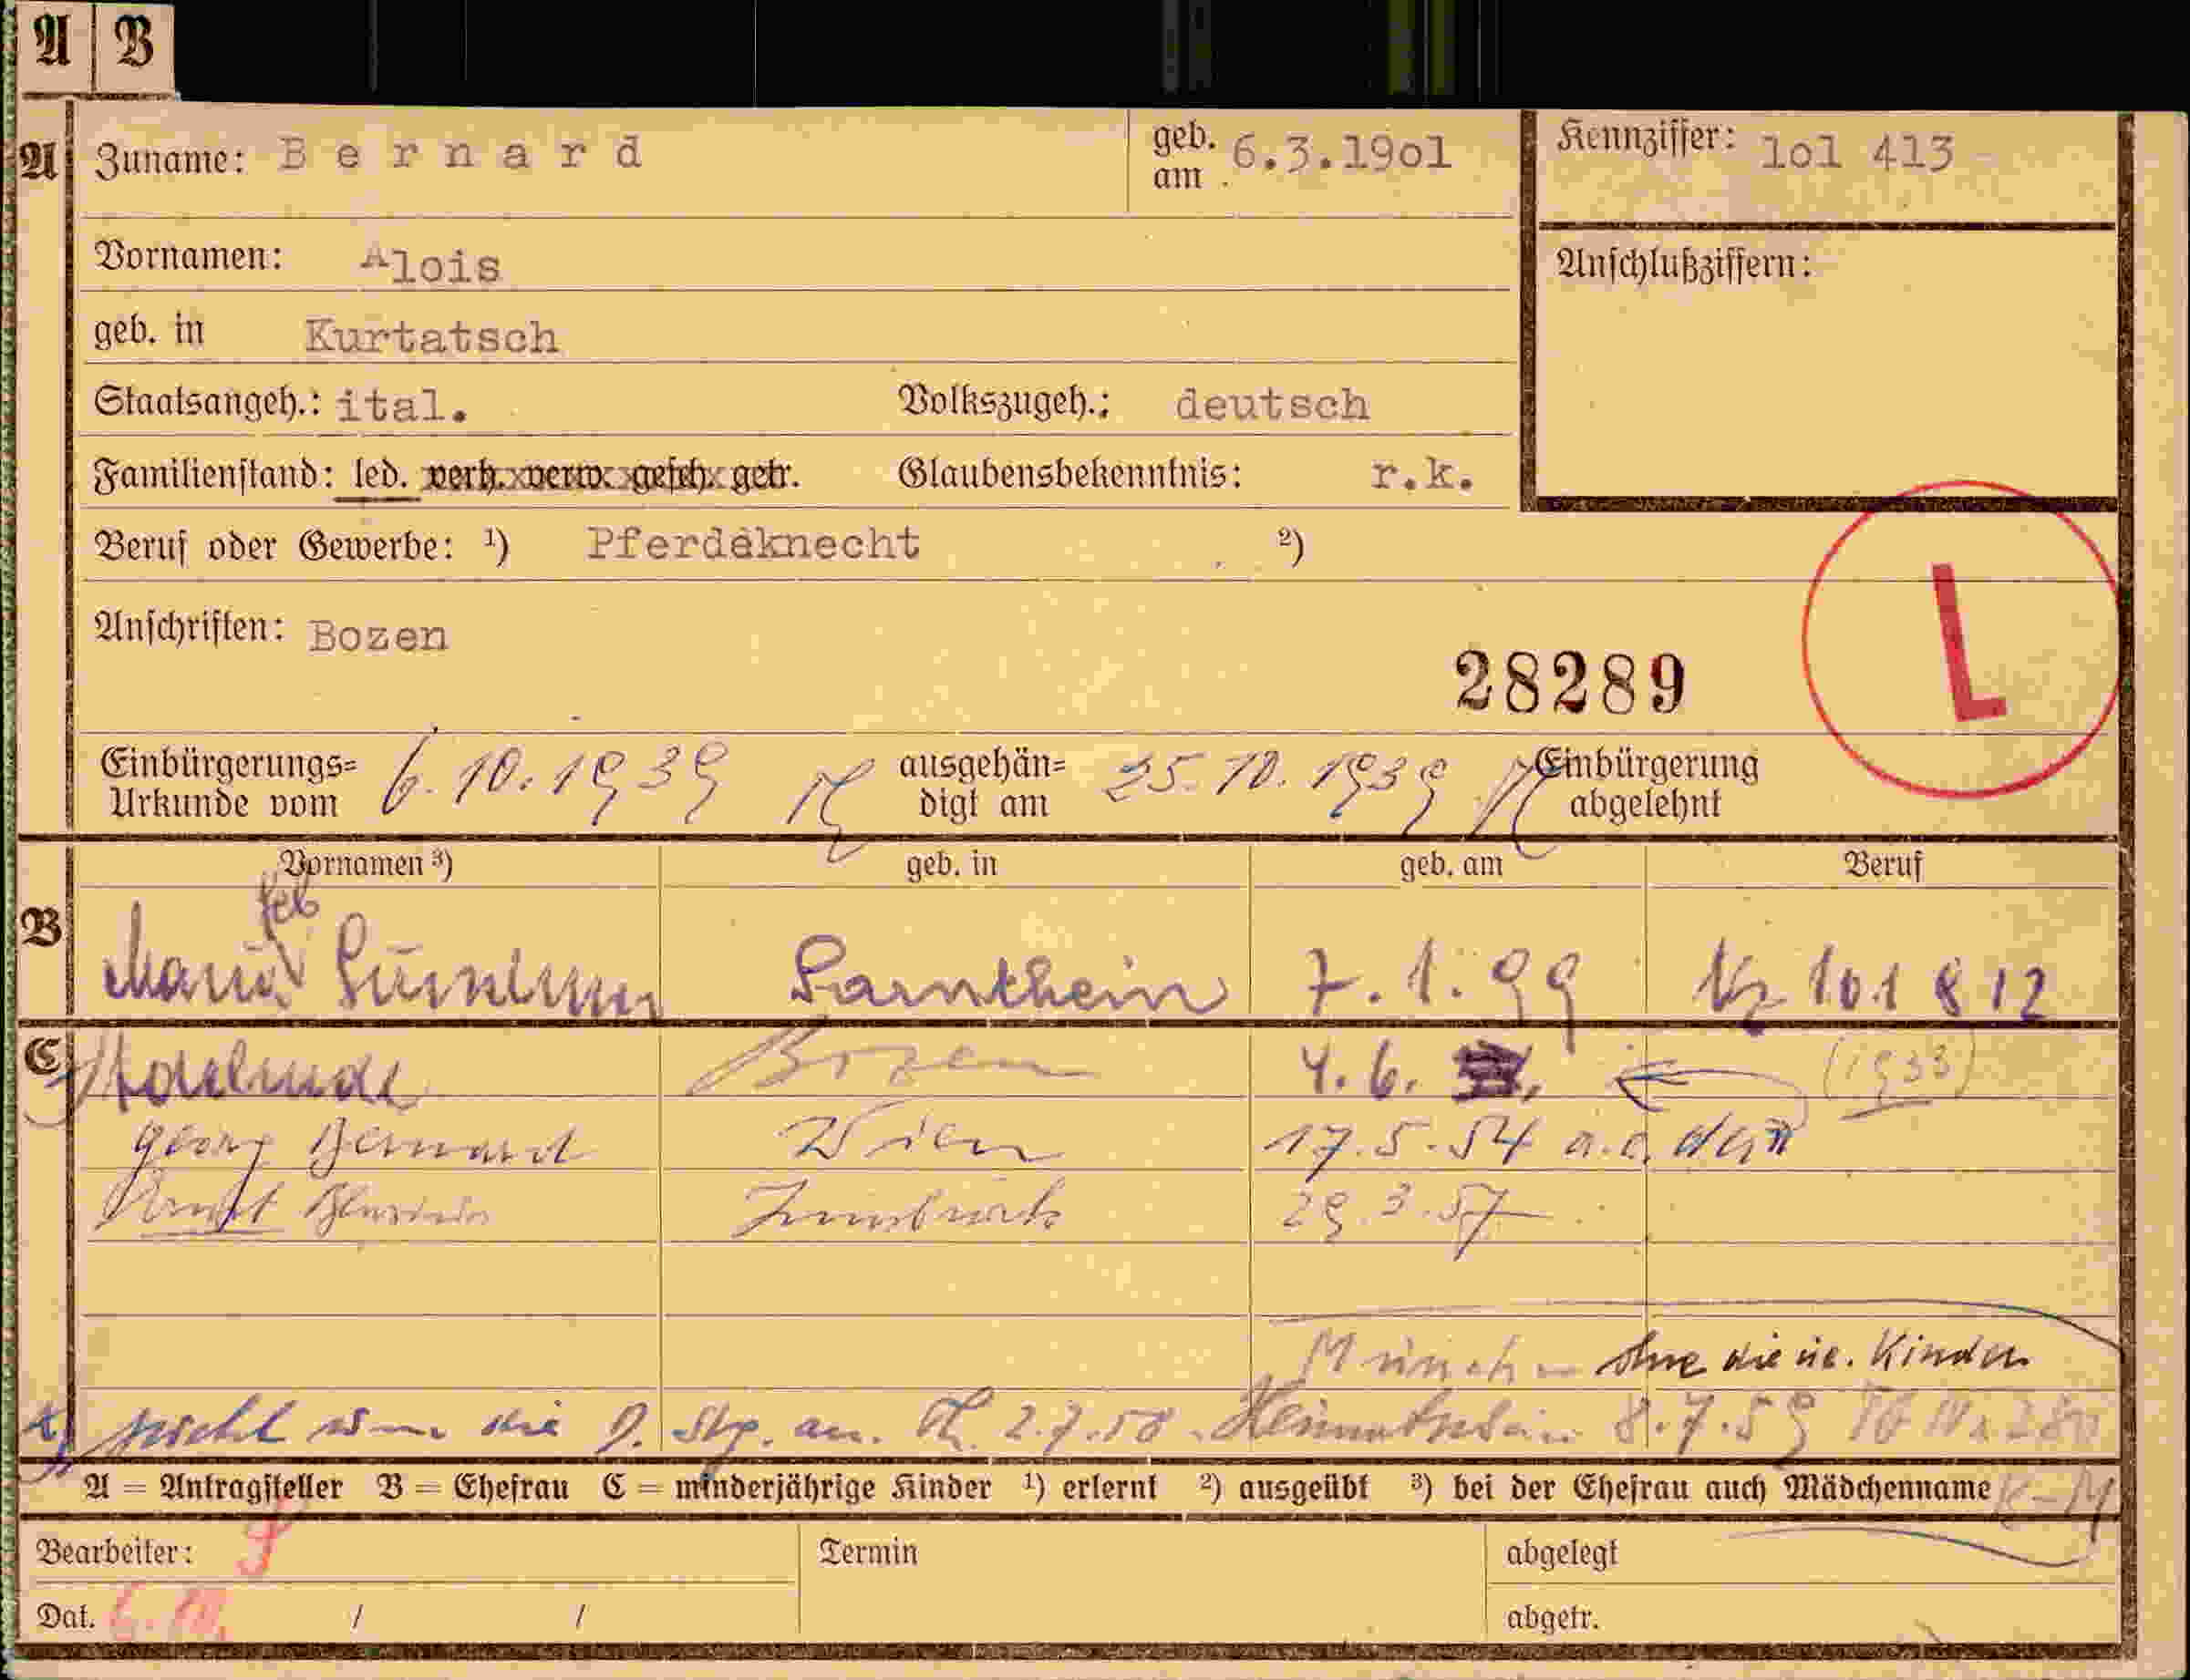 A B
A Zuname: Bernard geb. am 6.3.19o1 Kennziffer: 1o1 413
Vornamen: Alois Anschlußziffern:
geb. in Kurtatsch
Staatsangeh.: ital. Volkszugeh.: deutsch
Familienstand: led. verh. verw. gesch. getr. Glaubensbekenntnis: r.k.
Beruf oder Gewerbe: ¹) Pferdeknecht ²)
L
Anschriften: Bozen
28289
Einbürgerungs=Urkunde vom 6.10.1939 ausgehän=digt am 25.10.1939 Einbürgerung abgelehnt
Vornamen ³) geb. in geb. am Beruf
geb
B Maria Sarnthein 7.1.99 Kz 101 812
C Adelinde Bozen 4.6. (1933)
Georg Bernard Wien 17.5.54 a.c.
Innsbruck 29.3.57
München ohne die ue. Kinder
die D. Stg. an. 2.7.58. Heimatschein 8.7.59
A = Antragsteller B = Ehefrau C = minderjährige Kinder ¹) erlernt ²) ausgeübt ³) bei der Ehefrau auch Mädchenname K-M
Bearbeiter: Termin abgelegt
Dat. 6.10. / / abgetr.